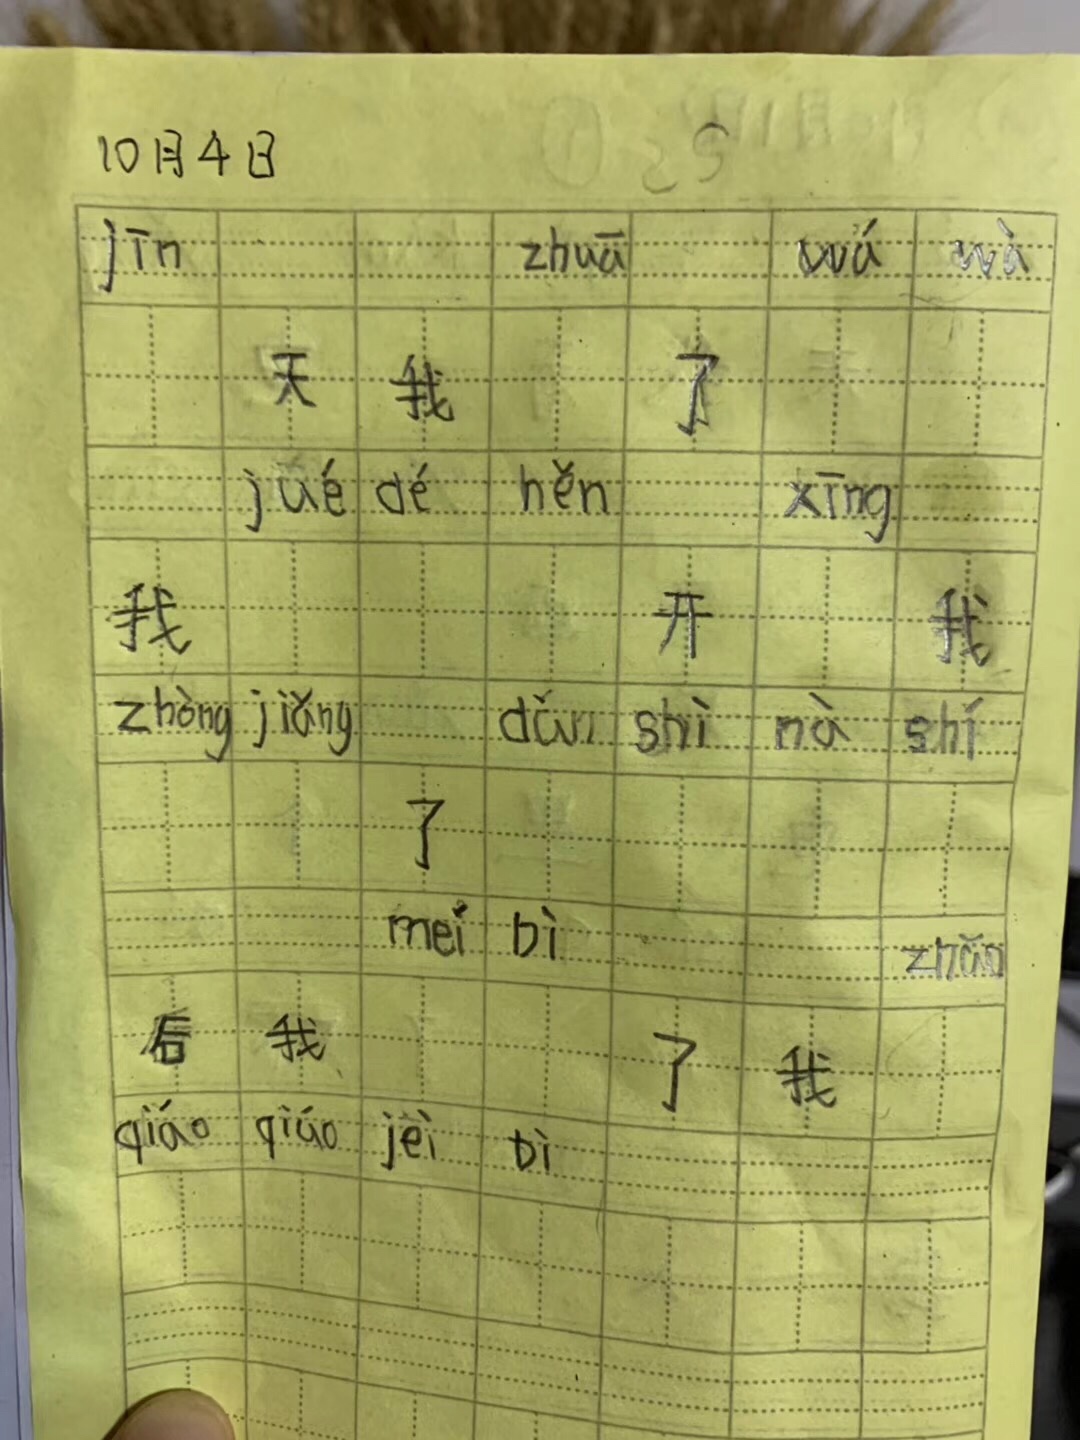 10月4日
jīn zhuā wá wà
天 我 了
jué dé hěn xīng
我 开 我
zhòng jiǎng dǎn shì nà shí
了
meí bì zhǎo
后 我 了 我
qiáo qiáo jeì bì